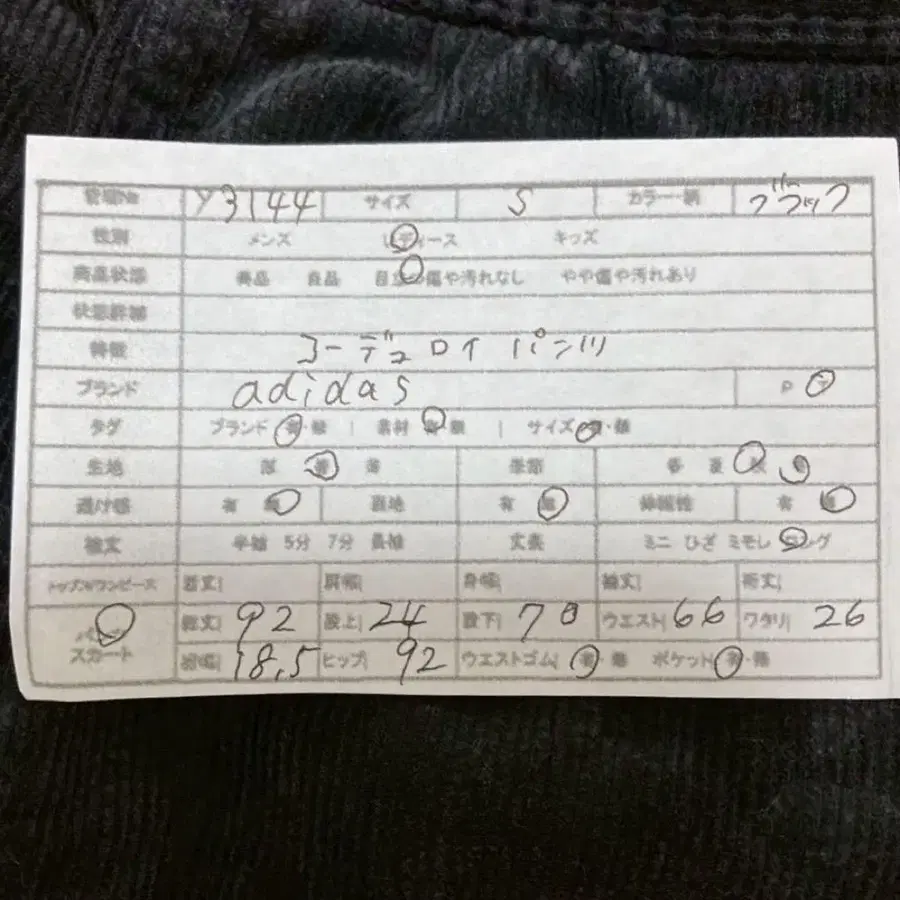 管理No Y3144 サイズ S カラー・柄 ブラック
性別 メンズ レディース キッズ
商品状態 美品 良品 目立つ傷や汚れなし やや傷や汚れあり
状態詳細
特徴 コーデュロイ パンツ
ブランド adidas P
タグ ブランド 有・無 | 素材 有・無 | サイズ 有・無
生地 厚 普 薄 季節 春 夏 秋 冬
透け感 有 無 裏地 有 無 伸縮性 有 無
袖丈 半袖 5分 7分 長袖 丈感 ミニ ひざ ミモレ ロング
トップス/ワンピース 着丈| 肩幅| 身幅| 袖丈| 裄丈|
パンツ 総丈| 92 股上| 24 股下| 70 ウエスト| 66 ワタリ| 26
スカート 裾幅| 18.5 ヒップ| 92 ウエストゴム| 有・無 ポケット| 有・無